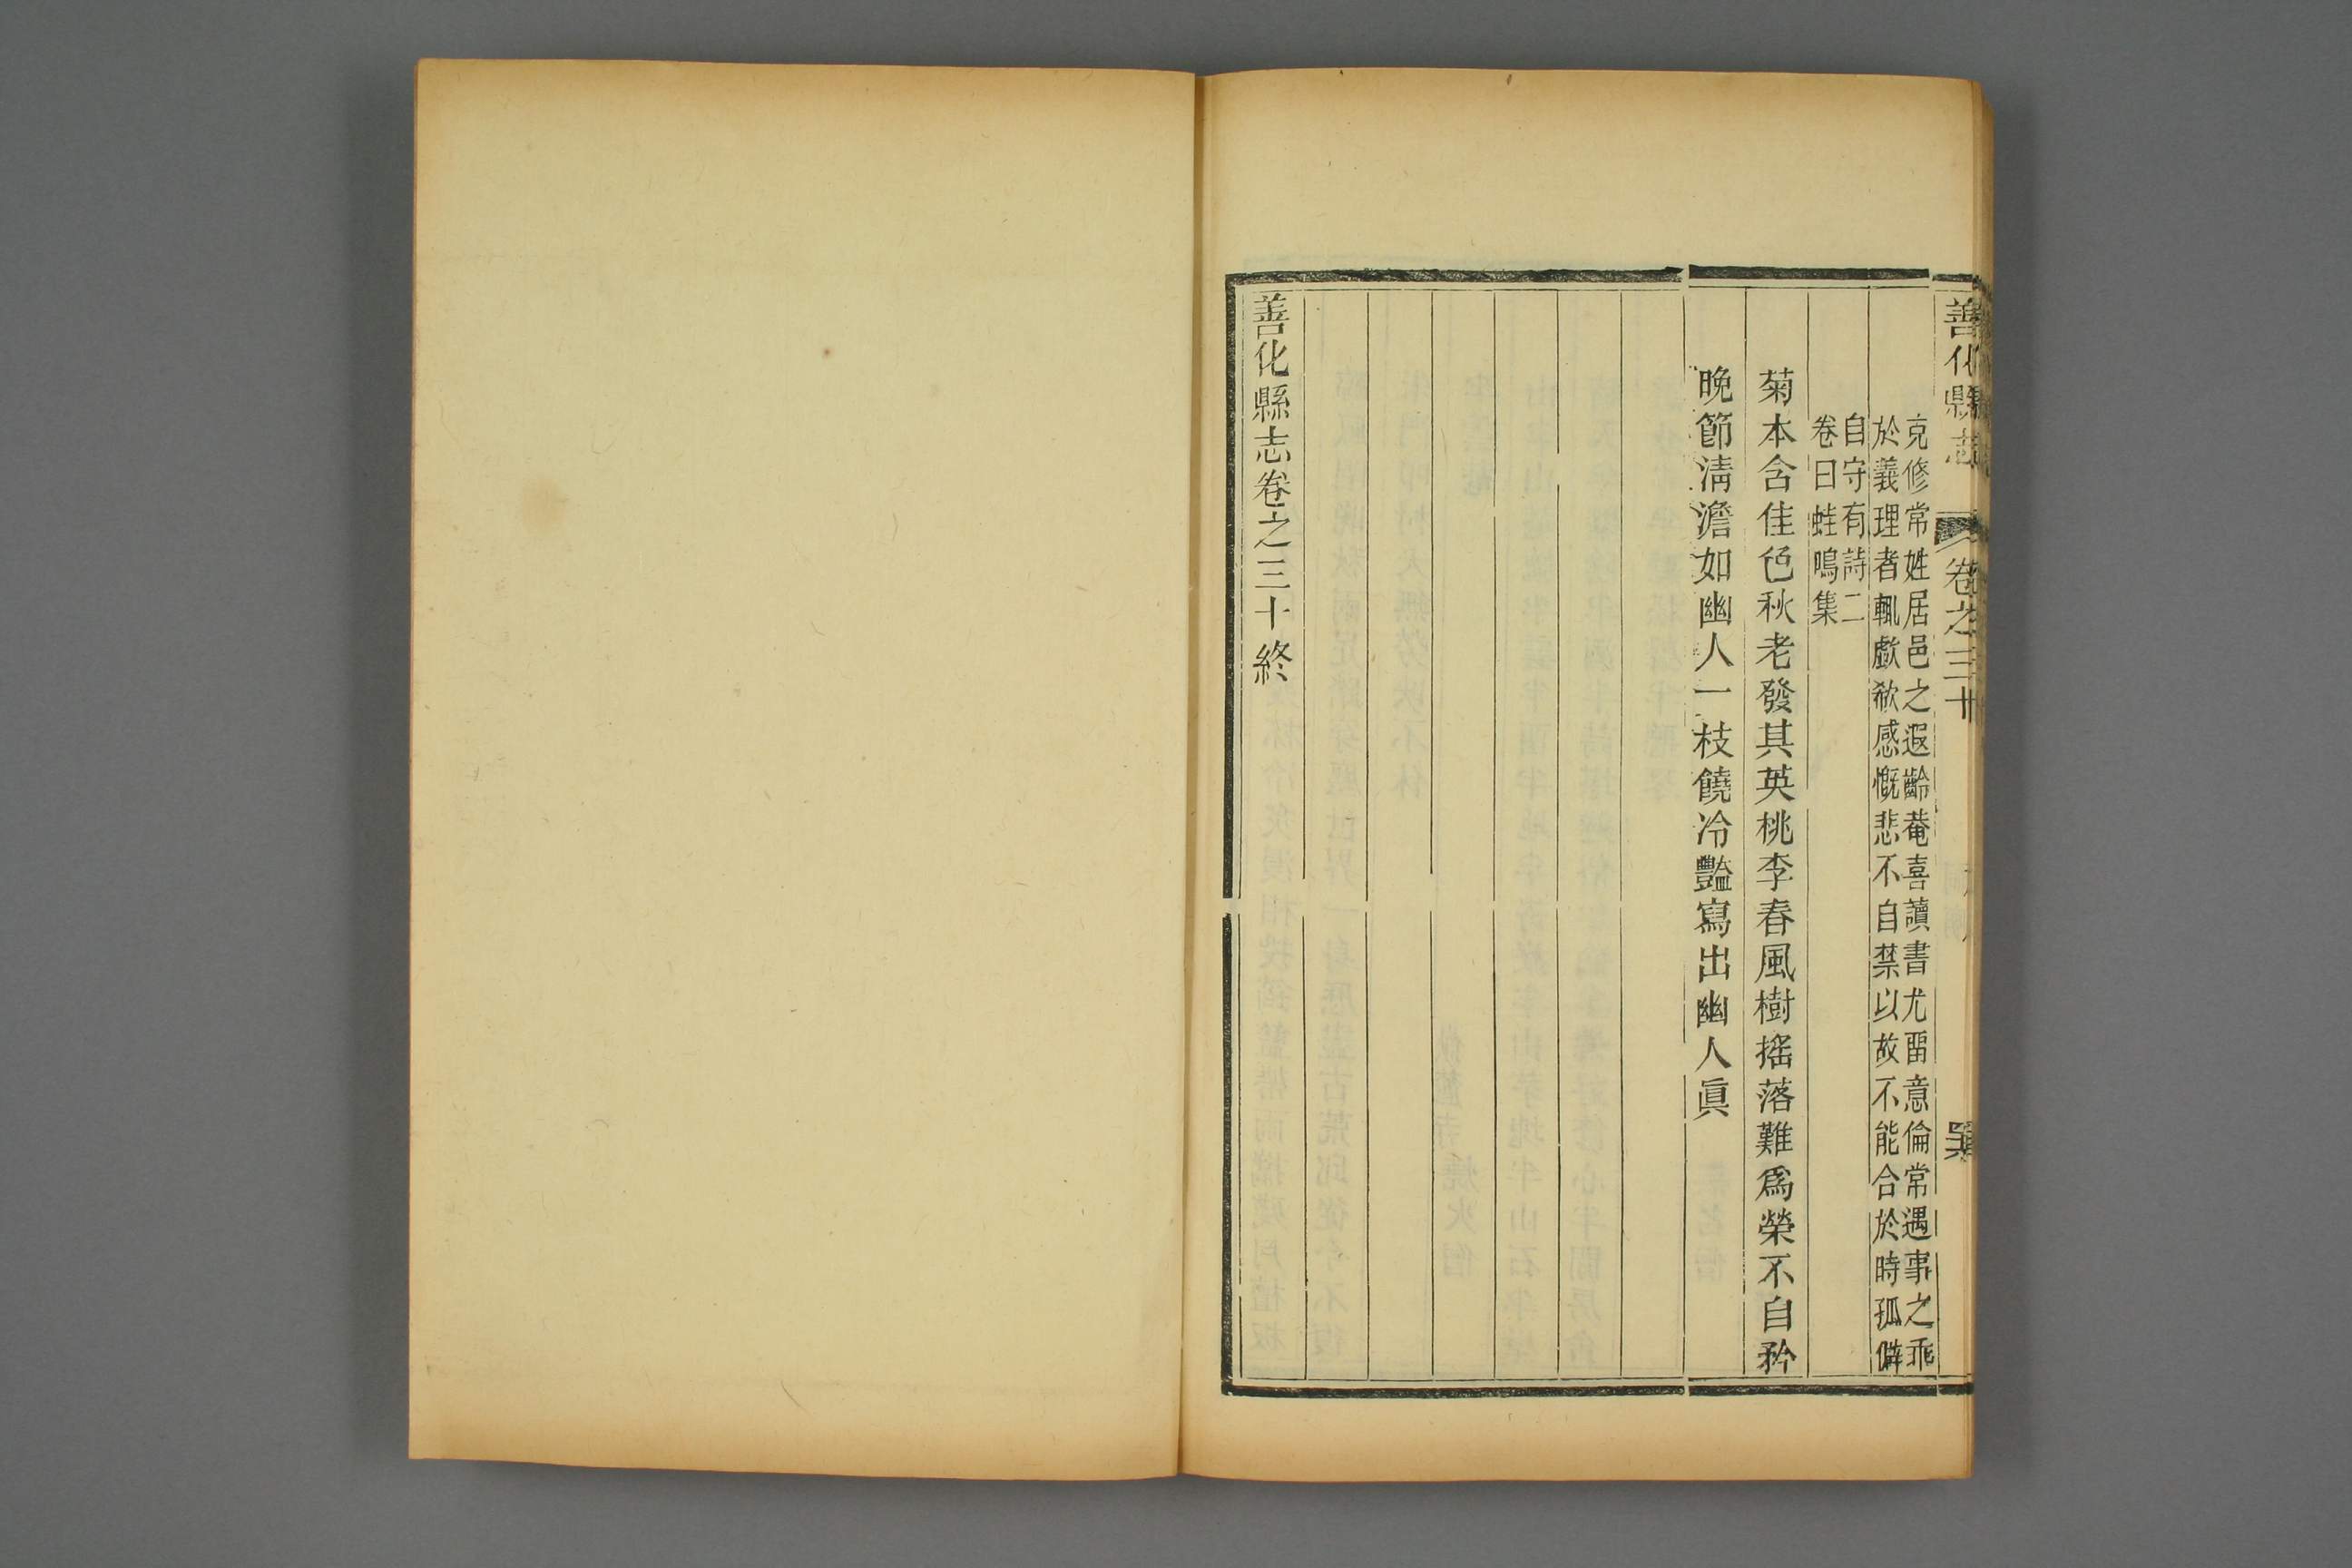 善化縣志 卷之三十
克修常姓居邑之遐齡菴喜讀書尤畱意倫常遇事之乖
於義理者輒歔欷感慨悲不自禁以故不能合於時孤僻
自守有詩二
卷曰蛙鳴集
菊本含佳色秋老發其英桃李春風樹搖落難爲榮不自矜
晚節淸澹如幽人一枝饒冷豔寫出幽人眞
善化縣志卷之三十終